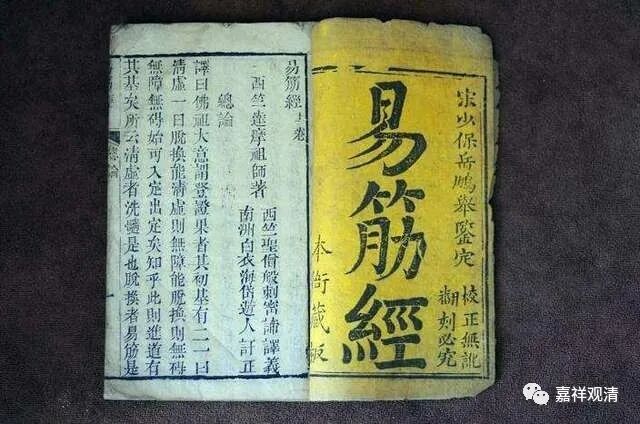 宋少保岳鵬舉鑒定
校正無訛
翻刻必究
易筋經
本衙藏板
易筋經上卷
西竺達摩祖師著
西竺聖僧般剌密諦譯義
南洲白衣海岱遊人訂正
總論
譯曰佛祖大意謂登證果者其初基有二一曰
清虛一曰脫換能清虛則無障能脫換則無碍
無障無碍始可入定出定矣知乎此則進道有
其基矣所云清虛者洗髓是也脫換者易筋是
嘉祥观清